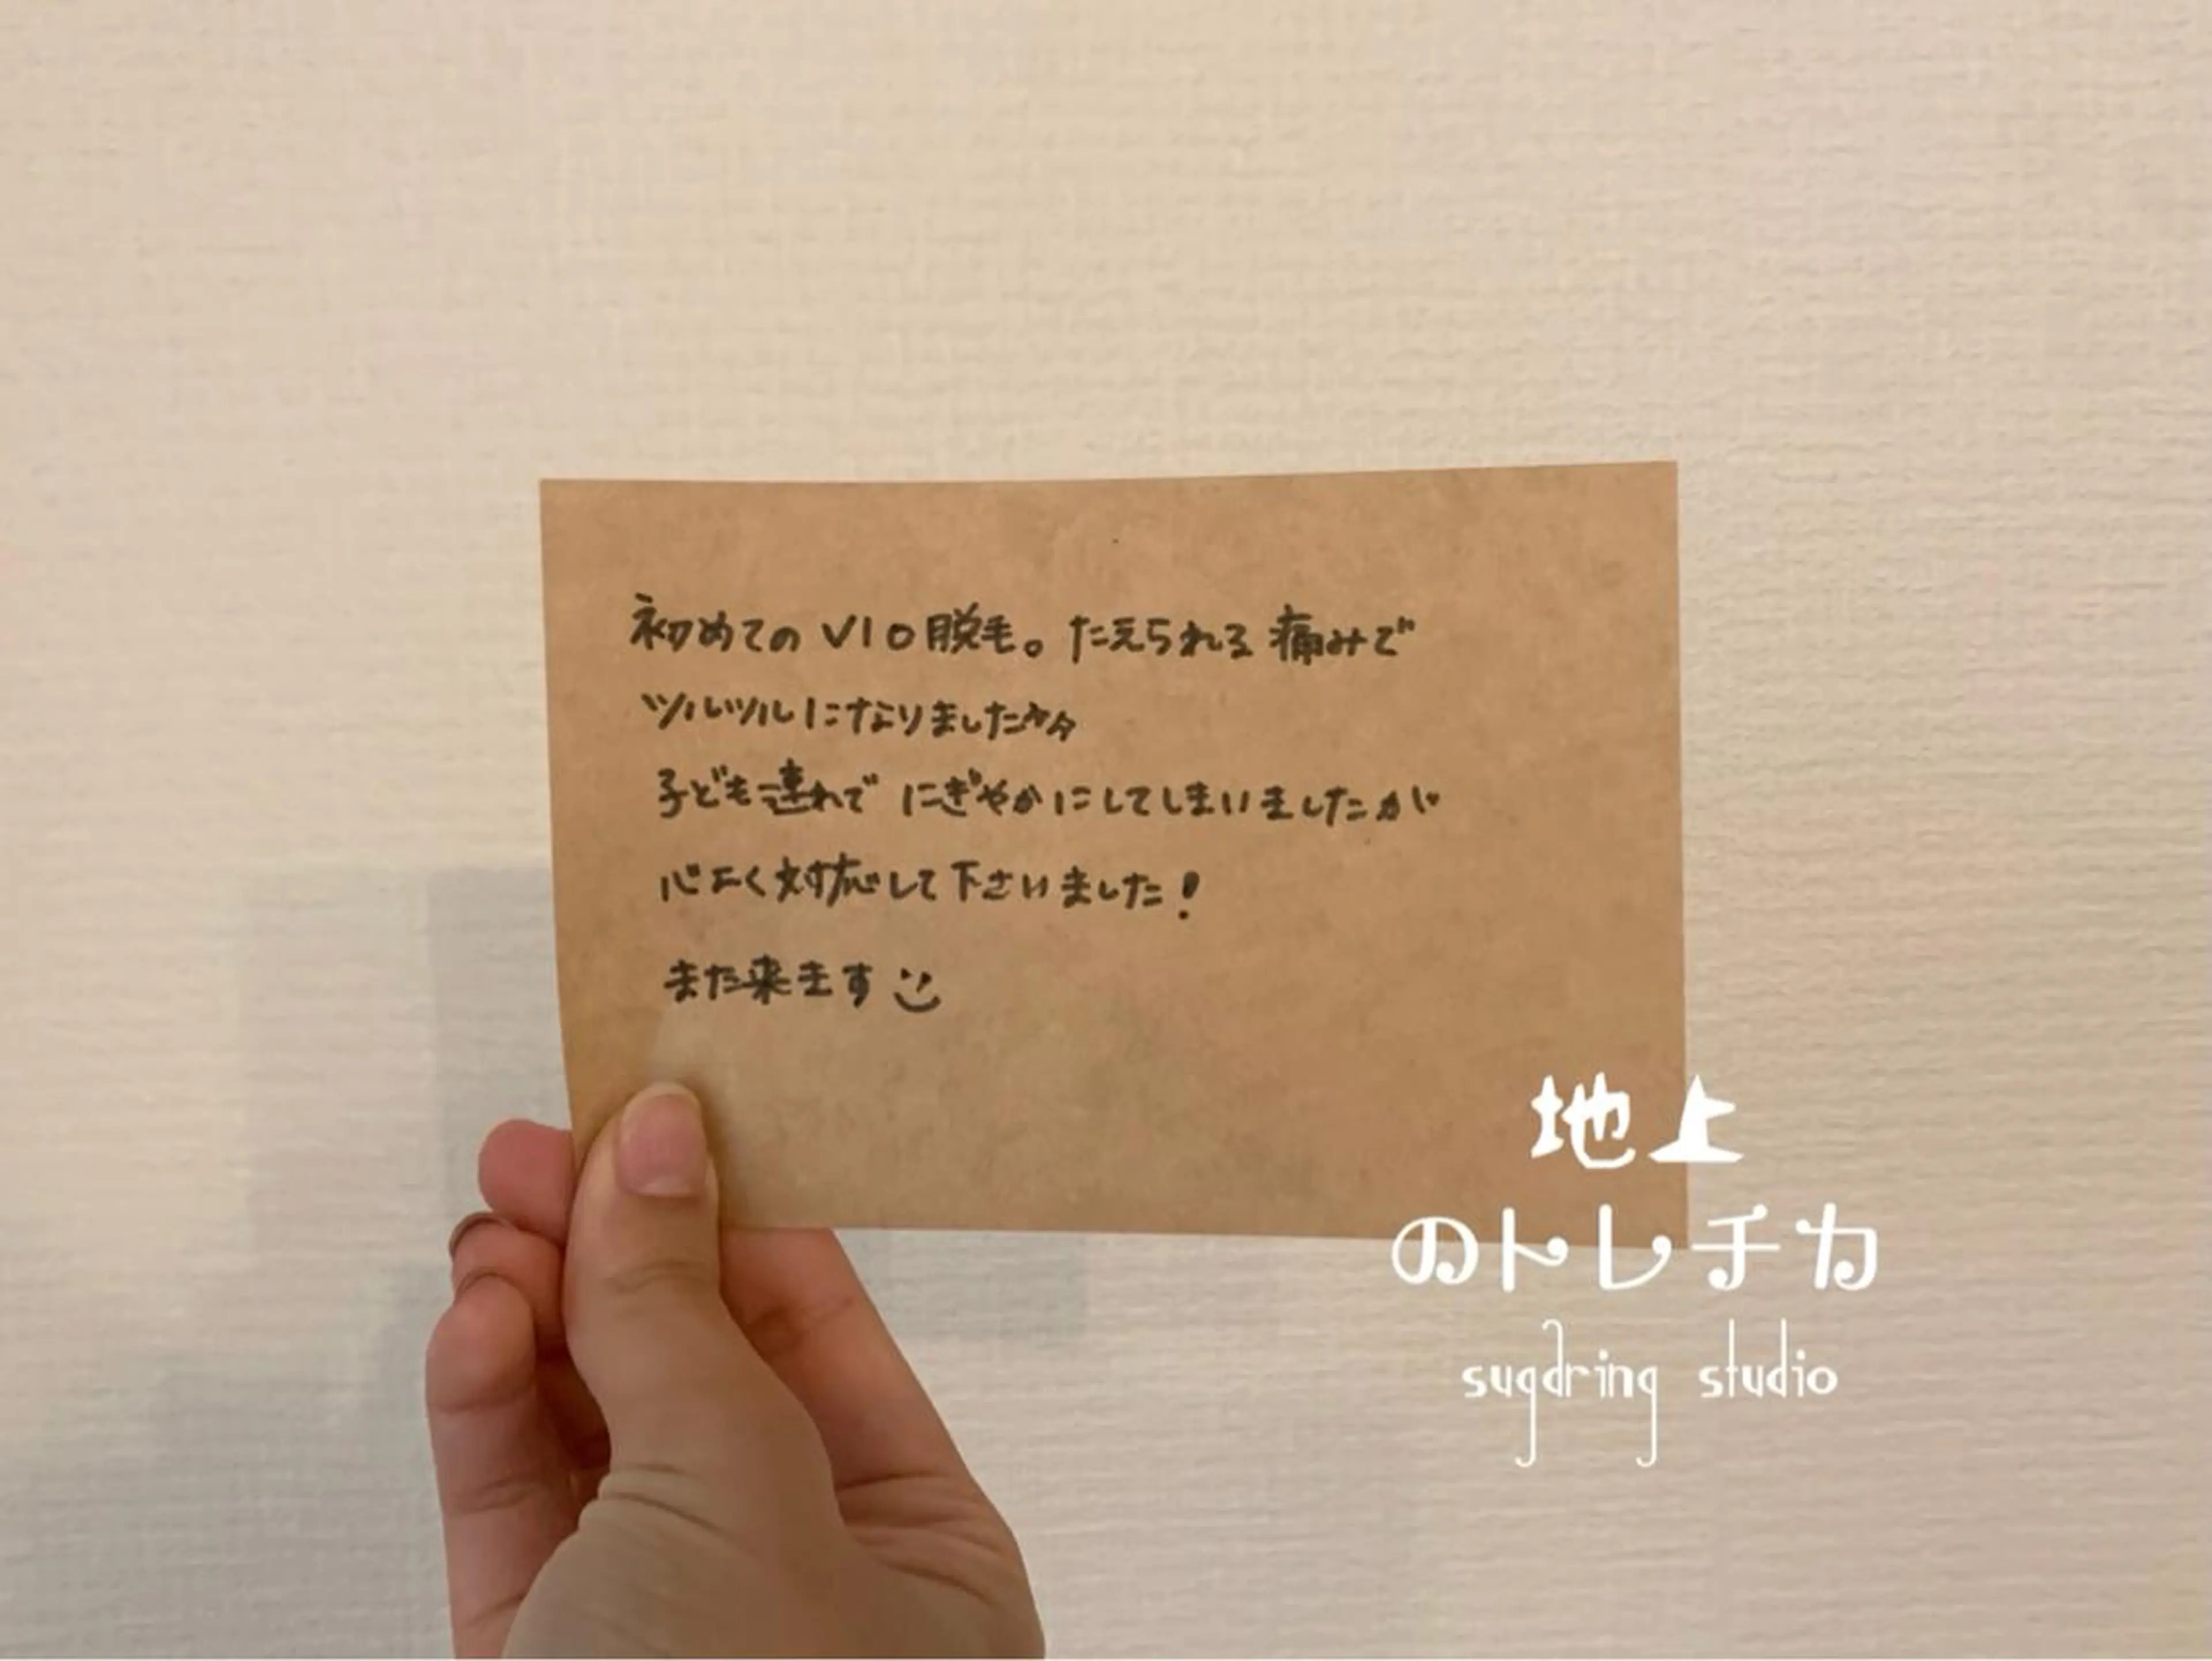 初めてのVIO脱毛。たえられる痛みで
ツルツルになりました☆☆
子ども連れで にぎやかにしてしまいましたが
心よく対応して下さいました！
また来ます
地上
のトレチカ
sugaring studio